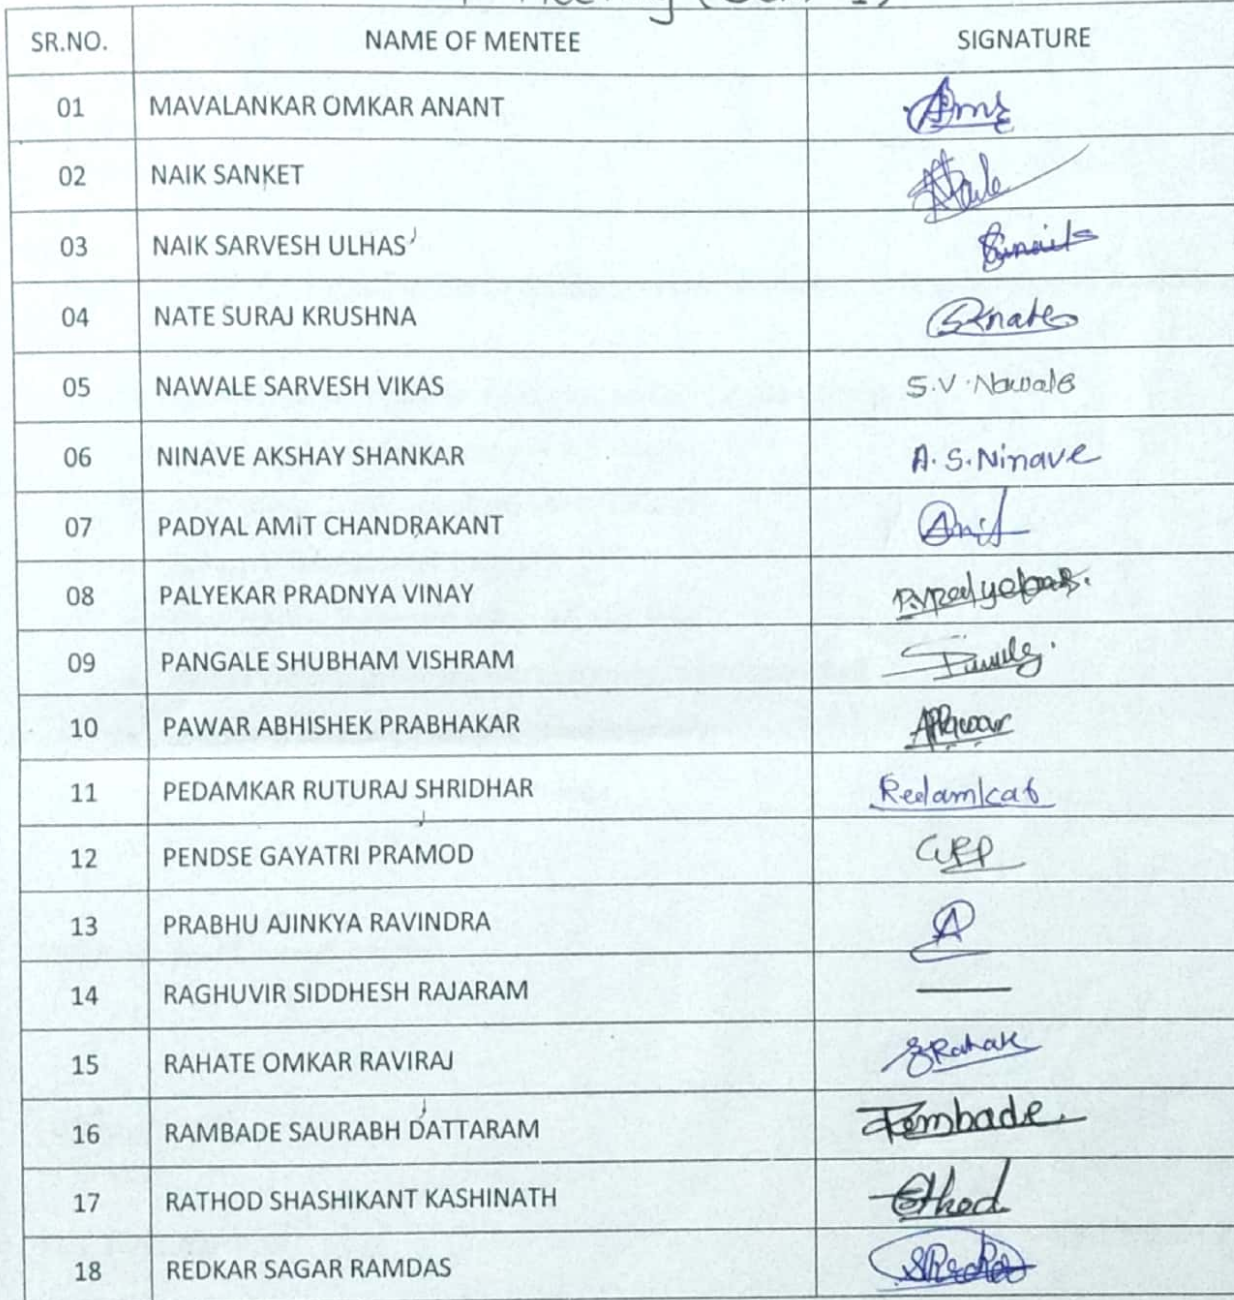 Meeting (Sem-I)
SR.NO. NAME OF MENTEE SIGNATURE
01 MAVALANKAR OMKAR ANANT
02 NAIK SANKET
03 NAIK SARVESH ULHAS Smaik
04 NATE SURAJ KRUSHNA SKnate
05 NAWALE SARVESH VIKAS S.V. Nawale
06 NINAVE AKSHAY SHANKAR A. S. Ninave
07 PADYAL AMIT CHANDRAKANT Amit
08 PALYEKAR PRADNYA VINAY
09 PANGALE SHUBHAM VISHRAM
10 PAWAR ABHISHEK PRABHAKAR APPawar
11 PEDAMKAR RUTURAJ SHRIDHAR Redamkar
12 PENDSE GAYATRI PRAMOD GPP
13 PRABHU AJINKYA RAVINDRA A
14 RAGHUVIR SIDDHESH RAJARAM —
15 RAHATE OMKAR RAVIRAJ
16 RAMBADE SAURABH DATTARAM Rembade
17 RATHOD SHASHIKANT KASHINATH
18 REDKAR SAGAR RAMDAS